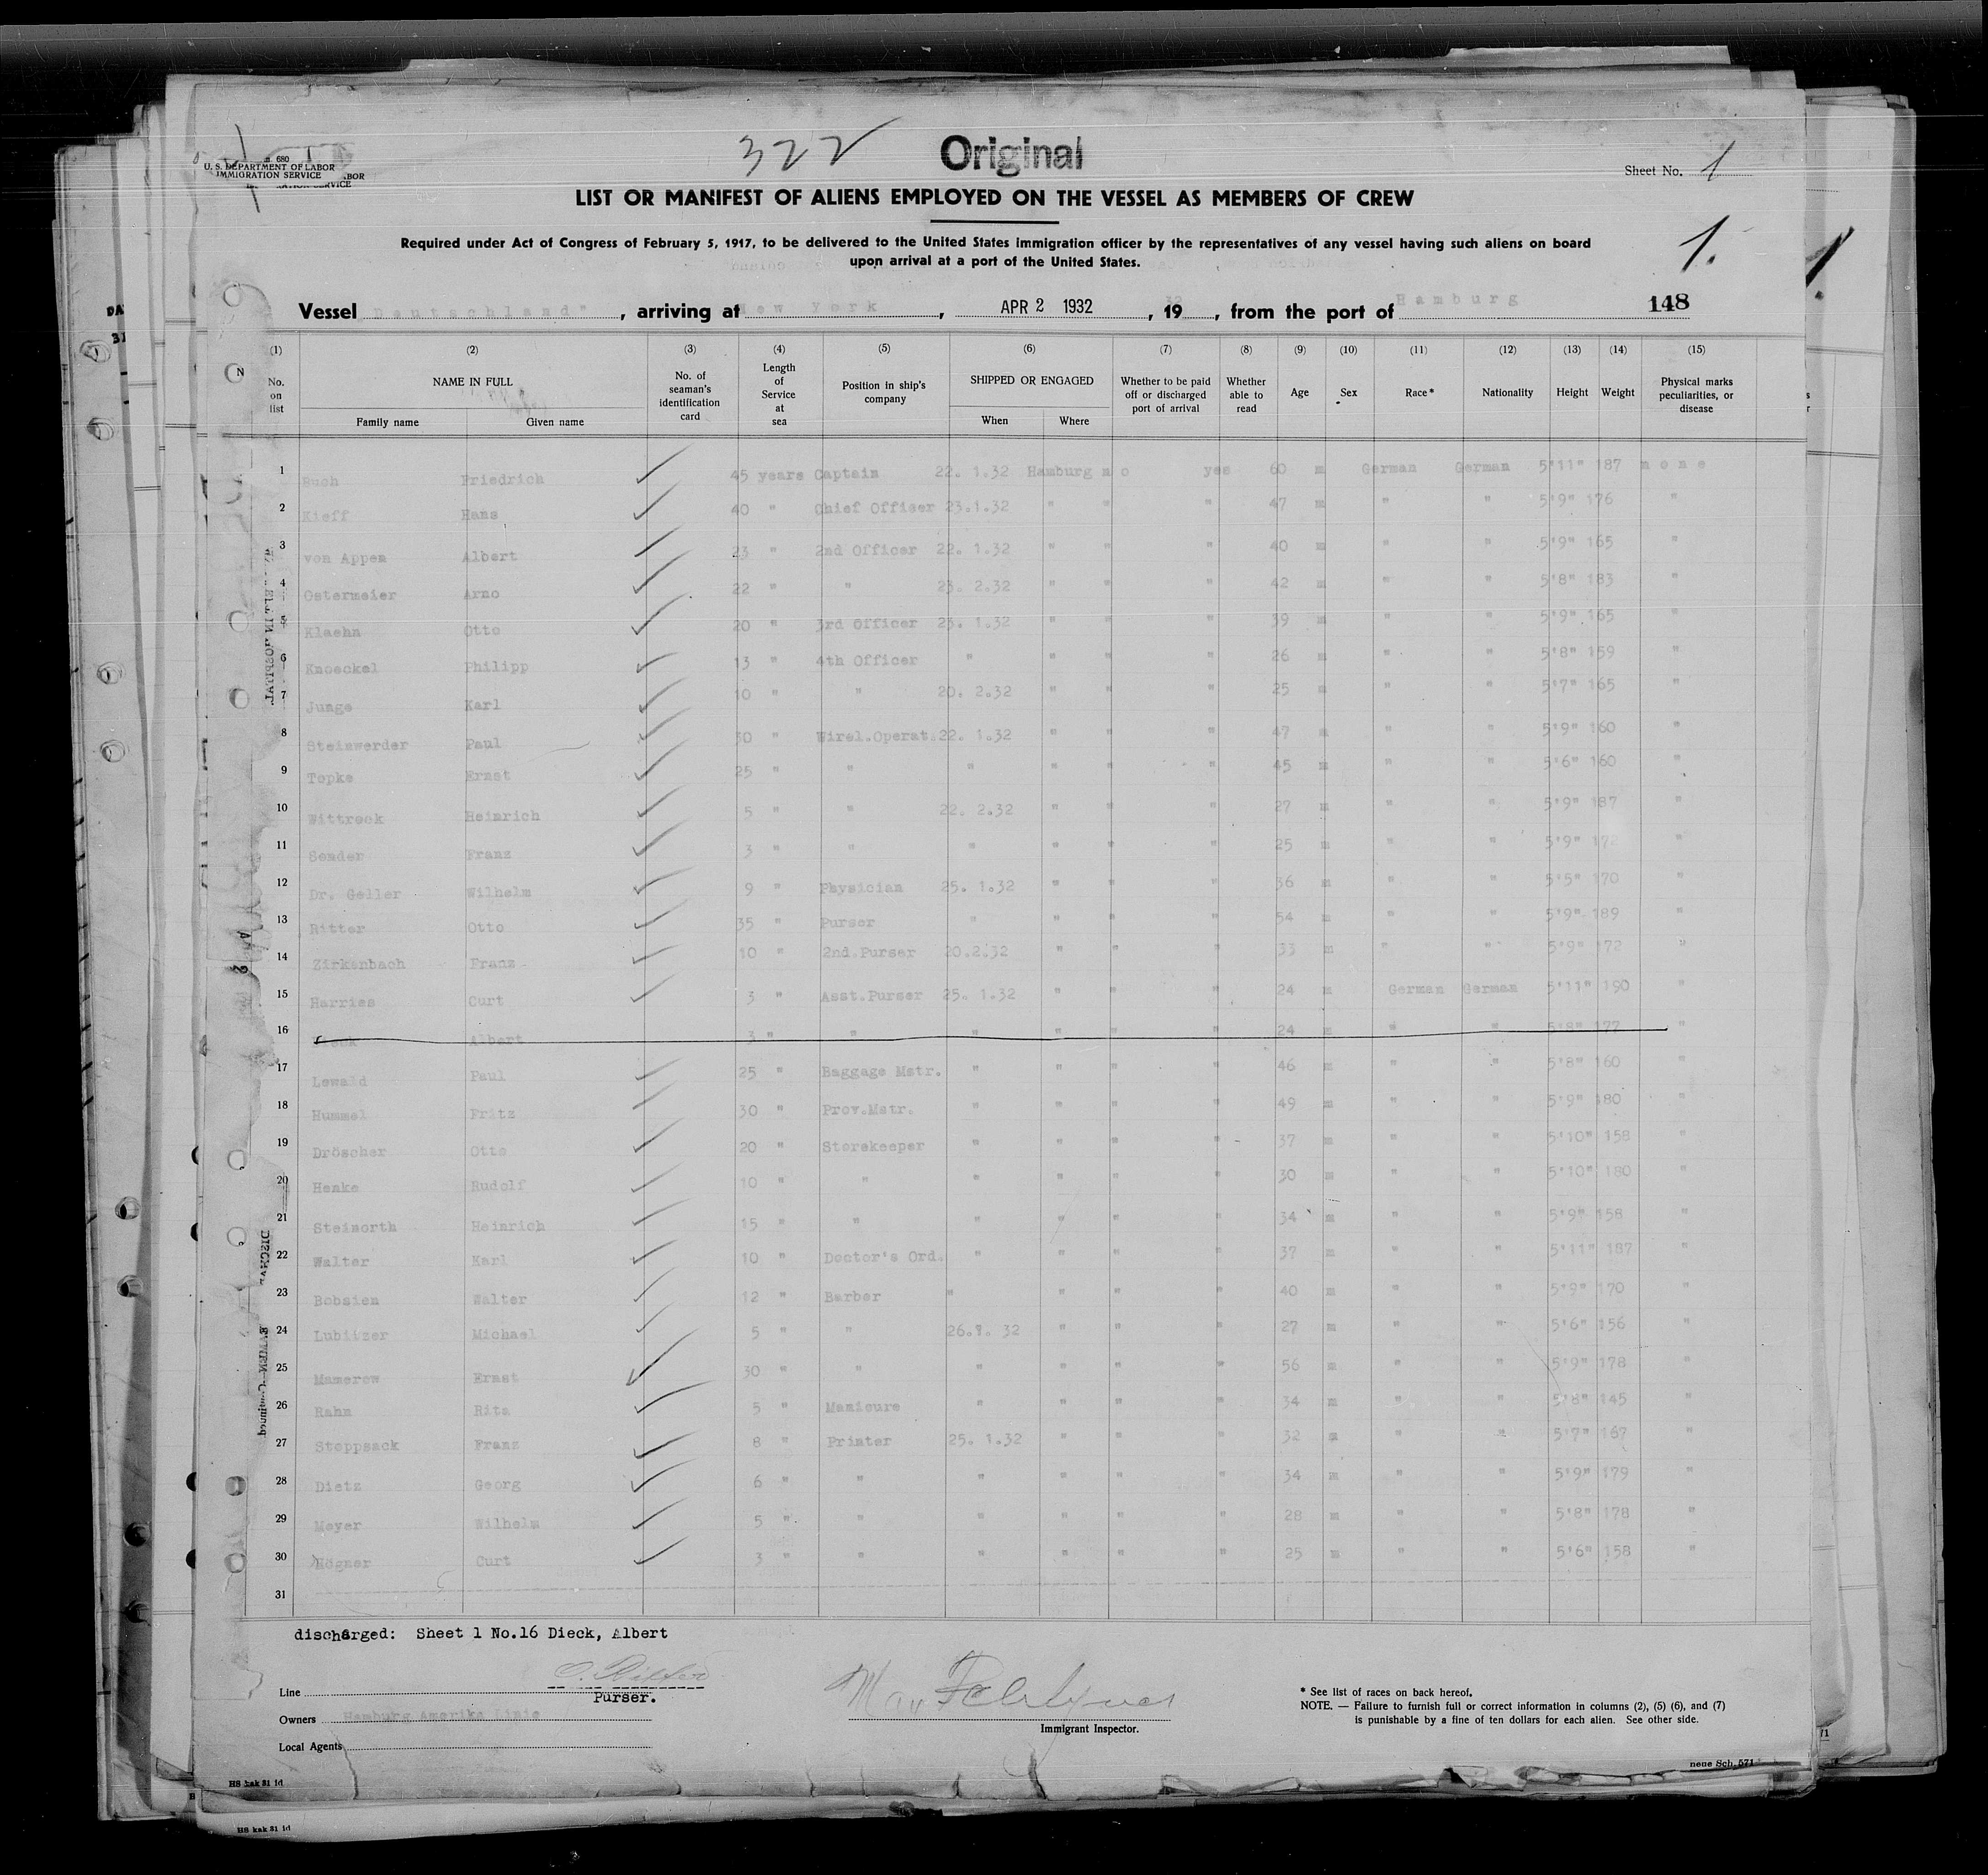 322
Original
680
U. S. DEPARTMENT OF LABOR
IMMIGRATION SERVICE
Sheet No. 1
LIST OR MANIFEST OF ALIENS EMPLOYED ON THE VESSEL AS MEMBERS OF CREW
Required under Act of Congress of February 5, 1917, to be delivered to the United States immigration officer by the representatives of any vessel having such aliens on board
upon arrival at a port of the United States.
1.
Vessel Deutschland", arriving at New York, APR 2 1932, 1932, from the port of Hamburg 148
(1) (2) (3) (4) (5) (6) (7) (8) (9) (10) (11) (12) (13) (14) (15)
No. on list NAME IN FULL Family name Given name No. of seaman's identification card Length of Service at sea Position in ship's company SHIPPED OR ENGAGED When Where Whether to be paid off or discharged port of arrival Whether able to read Age Sex Race* Nationality Height Weight Physical marks peculiarities, or disease
1 Buch Friedrich 45 years Captain 22. 1.32 Hamburg no yes 60 m German German 5'11" 187 none
2 Kieff Hans 40 " Chief Officer 23.1.32 " " " 47 m " " 5'9" 176 "
3 von Appen Albert 23 " 2nd Officer 22. 1.32 " " " 40 m " " 5'9" 165 "
4 Ostermeier Arno 22 " " 23. 2.32 " " " 42 m " " 5'8" 183 "
5 Klaehn Otto 20 " 3rd Officer 23. 1.32 " " " 39 m " " 5'9" 165 "
6 Knoeckel Philipp 13 " 4th Officer " " " " 26 m " " 5'8" 159 "
7 Junge Karl 10 " " 20. 2.32 " " " 25 m " " 5'7" 165 "
8 Steinwerder Paul 30 " Wirel.Operat. 22. 1.32 " " " 47 m " " 5'9" 160 "
9 Topke Ernst 25 " " " " " " 45 m " " 5'6" 160 "
10 Wittrock Heinrich 5 " " 22. 2.32 " " " 27 m " " 5'9" 187 "
11 Sonder Franz 3 " " " " " " 25 m " " 5'9" 172 "
12 Dr. Geller Wilhelm 9 " Physician 25. 1.32 " " " 36 m " " 5'5" 170 "
13 Ritter Otto 35 " Purser " " " " 54 m " " 5'9" 189 "
14 Zirkenbach Franz 10 " 2nd.Purser 20.2.32 " " " 33 m " " 5'9" 172 "
15 Harries Curt 3 " Asst.Purser 25. 1.32 " " " 24 m German German 5'11" 190 "
16 Dieck Albert 3 " " " " " " 24 m " " 5'8" 177 "
17 Lewald Paul 25 " Baggage Mstr. " " " " 46 m " " 5'8" 160 "
18 Hummel Fritz 30 " Prov.Mstr. " " " " 49 m " " 5'9" 180 "
19 Dröscher Otto 20 " Storekeeper " " " " 37 m " " 5'10" 158 "
20 Henke Rudolf 10 " " " " " " 30 m " " 5'10" 180 "
21 Steinorth Heinrich 15 " " " " " " 34 m " " 5'9" 158 "
22 Walter Karl 10 " Doctor's Ord. " " " " 37 m " " 5'11" 187 "
23 Bobsien Walter 12 " Barber " " " " 40 m " " 5'9" 170 "
24 Lubitzer Michael 5 " " 26.1. 32 " " " 27 m " " 5'6" 156 "
25 Mamerow Ernst 30 " " " " " " 56 m " " 5'9" 178 "
26 Rahn Rita 5 " Manicure " " " " 34 m " " 5'8" 145 "
27 Stoppsack Franz 8 " Printer 25. 1.32 " " " 32 m " " 5'7" 167 "
28 Dietz Georg 6 " " " " " " 34 m " " 5'9" 179 "
29 Meyer Wilhelm 5 " " " " " " 28 m " " 5'8" 178 "
30 Högner Curt 3 " " " " " " 25 m " " 5'6" 158 "
31
discharged: Sheet 1 No.16 Dieck, Albert
O. Ritter
Line Purser.
Owners Hamburg Amerika Linie
Local Agents
Immigrant Inspector.
* See list of races on back hereof.
NOTE. — Failure to furnish full or correct information in columns (2), (5) (6), and (7)
is punishable by a fine of ten dollars for each alien. See other side.
neue Sch. 571
HS kak 31 1d
HS kak 31 1d